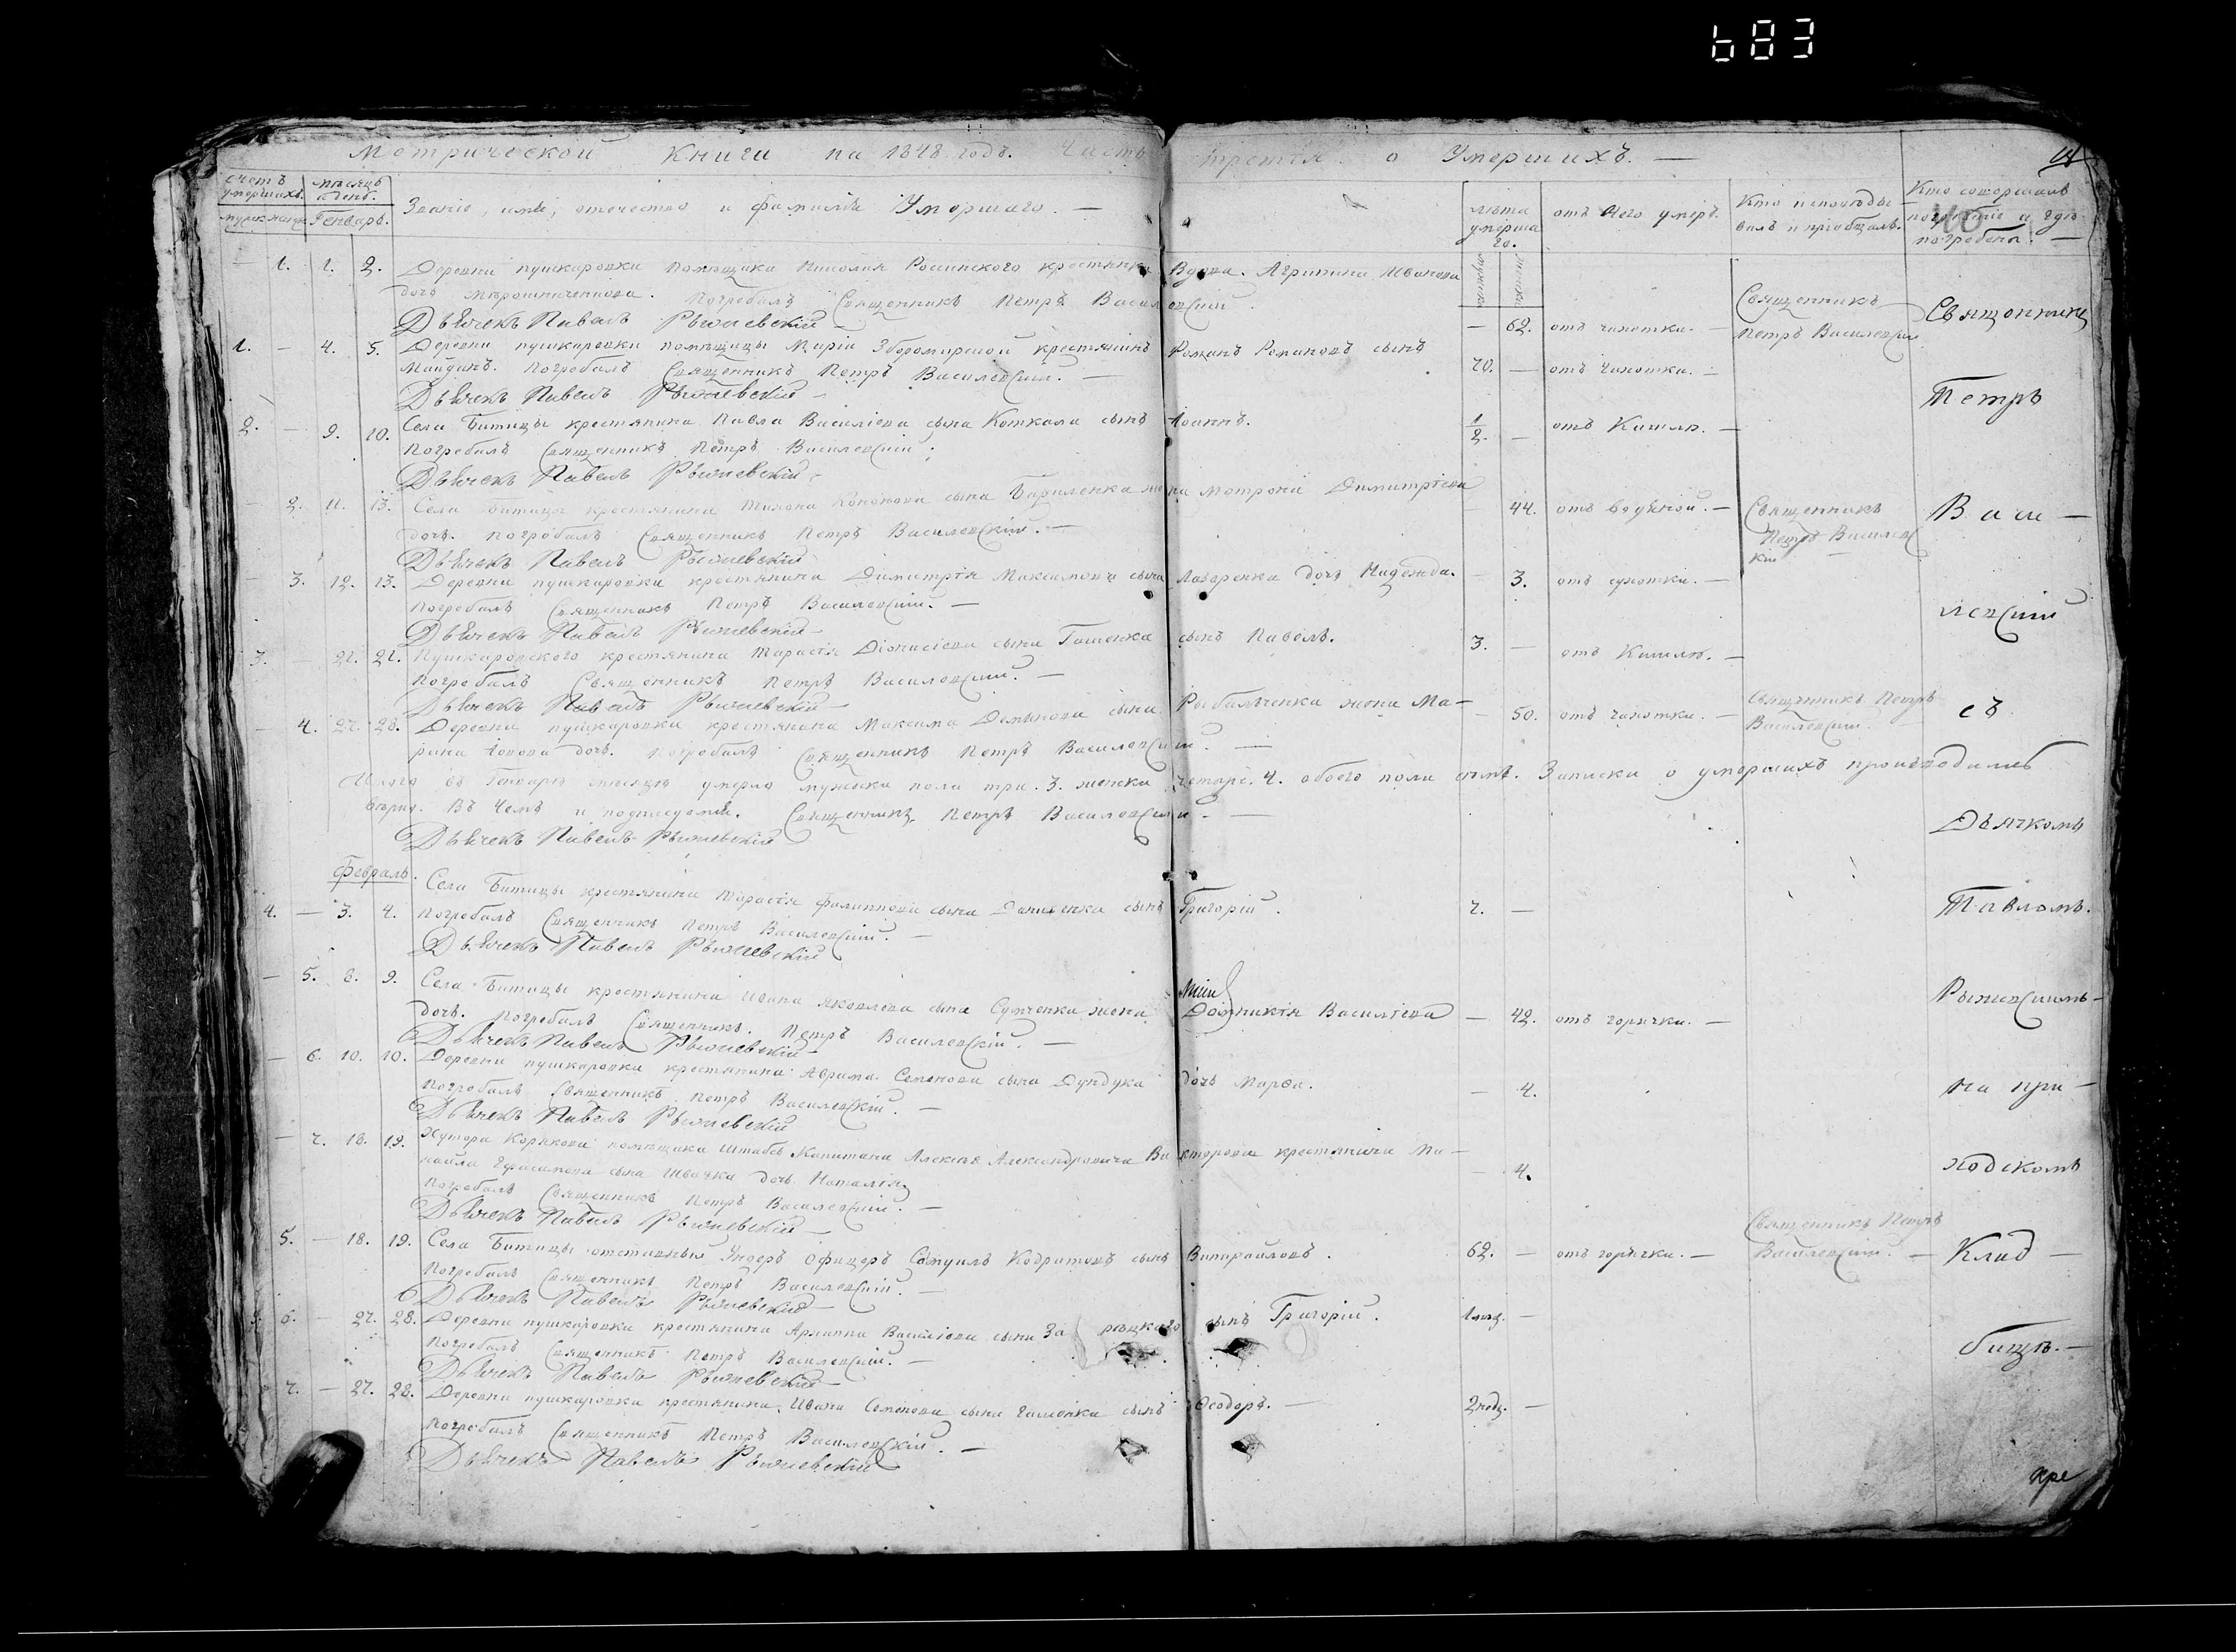 683
Метрической Книги на 1848 годъ. Часть третія о Умершихъ. —
счетъ умершихъ. мѣсяцъ и день. Звание, имя, отечество и фамилія Умершаго. — лѣта умерша го. отъ чего умеръ. Кто исповѣды валъ и пріобщалъ. Кто совершалъ погребеніе и гдѣ погребены. —
Генварь.
— 1. 1. 2. Деревни пушкаровки помѣщика Николая крестьянка Вдова. Агрипина Иванова
дочь Мѣрошниченкова. Погребалъ Священникъ Петръ Василевскій. — 62. отъ чахотки. — Священникъ Петръ Василевскій Священникъ
Дьячекъ Павелъ Рыжиевскій —
1. — 4. 5. Деревни пушкаровки помѣщицы Маріи крестьянинъ Романъ Романовъ сынъ
Майданъ. Погребалъ Священникъ Петръ Василевскій. — 70. — отъ чахотки. —
Дьячекъ Павелъ Рыжиевскій — Петръ
2. — 9. 10. Села Битицы крестьянина Павла Василіева сына Коткала сынъ Іоаннъ. 1/2 — отъ Кашля. —
погребалъ Священникъ Петръ Василевскій;
Дьячекъ Павелъ Рыжиевскій
— 2. 11. 13. Села Битицы крестьянина сына жена Матрона Димитріева
дочь. погребалъ Священникъ Петръ Василевскій. — 44. отъ водяной. — Священникъ Петръ Василевскій Васи —
Дьячекъ Павелъ Рыжиевскій
— 3. 12. 13. Деревни пушкаровки крестьянина Димитрія Максимова сына Лазаренка дочь Надежда. — 3. отъ сухотки. —
погребалъ Священникъ Петръ Василевскій. —
Дьячекъ Павелъ Рыжиевскій — левскій
3. — 21. 21. Пушкаровского крестьянина Тарасія Діонисіева сына сынъ Павелъ. 3. — отъ Кашля. —
погребалъ Священникъ Петръ Василевскій. —
Дьячекъ Павелъ Рыжиевскій —
— 4. 27. 28. Деревни пушкаровки крестьянина Максима сына Рыбальченка жена Ма-
рина дочь. погребалъ Священникъ Петръ Василевскій. — 50. отъ чахотки. — Священникъ Петръ Василевскій. съ
Итого въ Генварѣ мѣсяцѣ умерло мужска пола три. 3. женска четыре. 4. обоего пола Записки о умершихъ производилъ
вѣрно. Въ чемъ и подписуемся. Священникъ Петръ Василевскій. —
Дьячекъ Павелъ Рыжиевскій Дьячкомъ
Февраль.
4. — 3. 4. Села Битицы крестьянина Тарасія Филиппова сына сынъ Григорій. —
погребалъ Священникъ Петръ Василевскій. — Павломъ.
Дьячекъ Павелъ Рыжиевскій
— 5. 8. 9. Села Битицы крестьянина Ивана Яковлева сына Сумченка жена Домникія Василіева — 42. отъ горячки. —
дочь. погребалъ Священникъ Петръ Василевскій. — Рыжевскимъ —
Дьячекъ Павелъ Рыжиевскій —
— 6. 10. 10. Деревни пушкаровки крестьянина Аврама Семенова сына Дундука дочь Марѳа. — 4. на при —
погребалъ Священникъ Петръ Василевскій. —
Дьячекъ Павелъ Рыжиевскій
— 7. 18. 19. Хутора помѣщика Штабсъ Капитана Алексѣя Александровича крестьянина Ми —
хаила сына Швачка дочь Наталія. — 4. ходскомъ
погребалъ Священникъ Петръ Василевскій. —
Дьячекъ Павелъ Рыжиевскій —
5. — 18. 19. Села Битицы отставный Ундеръ Офицеръ Самуилъ Кодратовъ сынъ 62. — отъ горячки. — Священникъ Петръ Василевскій. — Клад —
погребалъ Священникъ Петръ Василевскій. —
Дьячекъ Павелъ Рыжиевскій —
6. — 27. 28. Деревни пушкаровки крестьянина Архиппа Василіева сына сынъ Григорій. 1 мѣс. —
погребалъ Священникъ Петръ Василевскій. — бищѣ. —
Дьячекъ Павелъ Рыжиевскій —
7. — 27. 28. Деревни пушкаровки крестьянина Ивана Семенова сына сынъ Ѳеодоръ. — —
погребалъ Священникъ Петръ Василевскій. —
Дьячекъ Павелъ Рыжиевскій